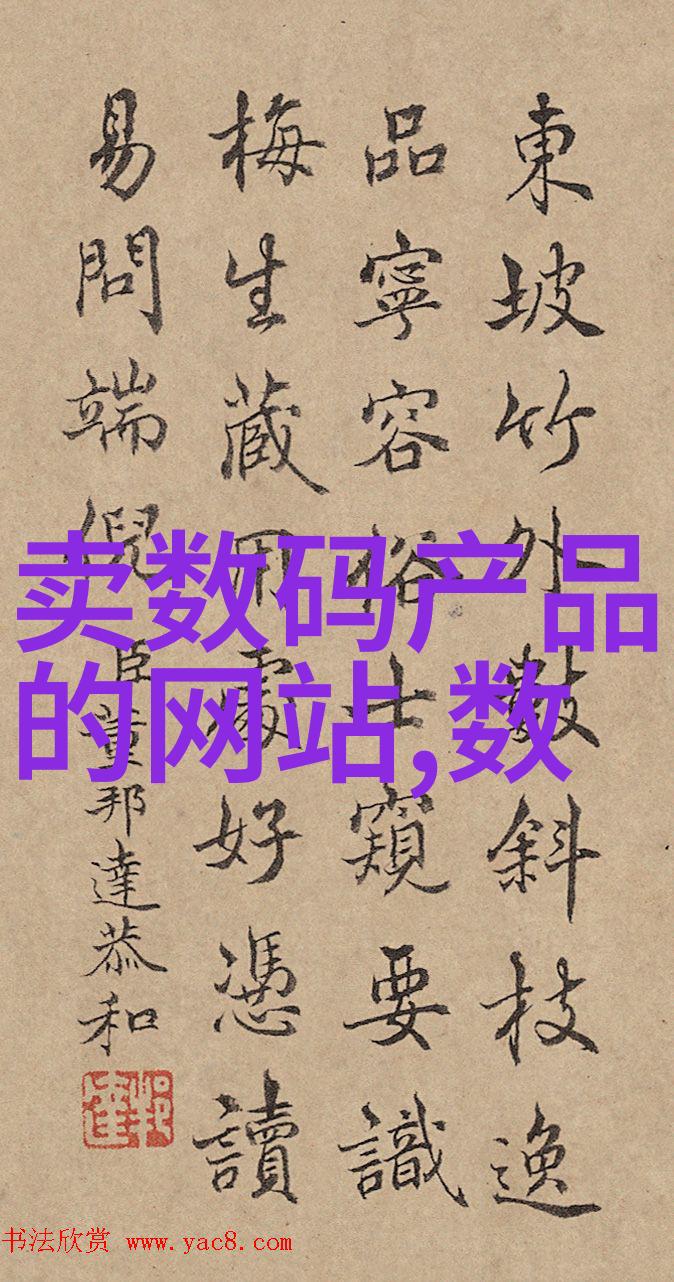 東坡竹外數斜枝逸
品寧容俗士窺要識
梅生藏用處好憑讀
易問端倪臣董邦達恭和
卖数码产品
的网站,数
书法欣赏 www.yac8.com